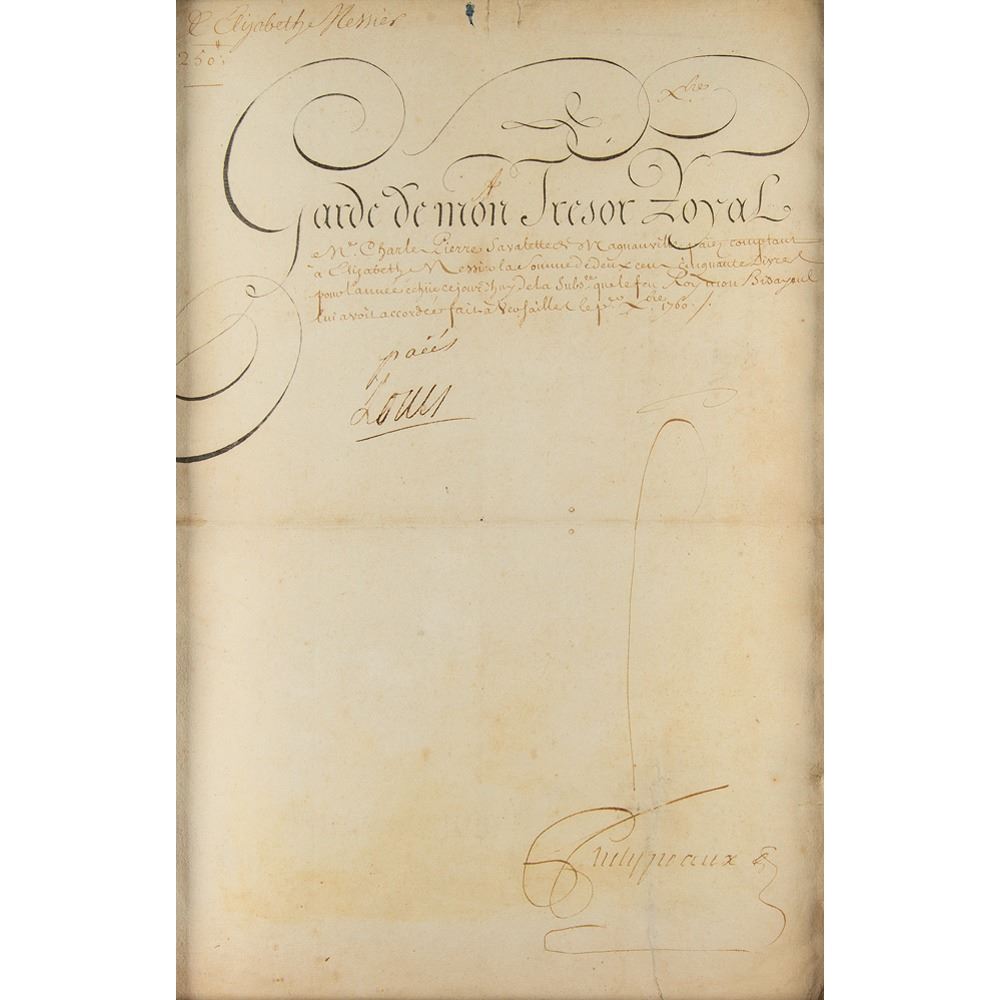 Elizabeth Messier
250
xbre
Garde de mon Tresor Royal
Me. Charle Pierre Savalette de Magnanville paiez comptant
a Elizabeth Messier la Somme de deux cent Cinquante Livres
pour l'année echüe cejourd'huy de la Subsce. que le feu Roy mon Bisayeul
lui avoit accordée fait a Versailles le po. Xbre. 1760 ./.
paiés
Louis
Phelypeaux